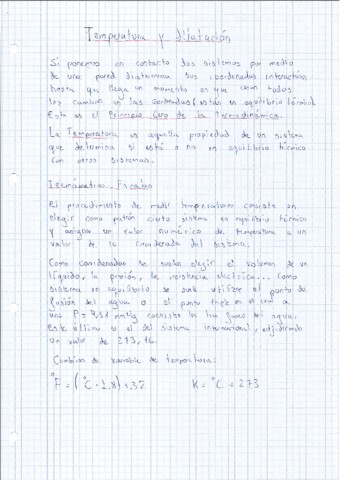 Temperatura y dilatación
Si ponemos en contacto dos sistemas por medio
de una pared diatermana sus coordenadas interactúan
hasta que llega un momento en que cesan todos
los cambios en las coordenadas (están en equilibrio térmico).
Este es el Principio Cero de la Termodinámica.
La Temperatura es aquella propiedad de un sistema
que determina si está o no en equilibrio térmico
con otros sistemas.
Termómetros. Escalas
El procedimiento de medir temperaturas consiste en
elegir como patrón cierto sistema en equilibrio térmico
y asignar un valor numérico de temperatura a un
valor de la coordenada del sistema.
Como coordenadas se suelen elegir el volumen de un
líquido, la presión, la resistencia eléctrica... Como
sistema en equilibrio se suele utilizar el punto de
fusión del agua o el punto triple en el cual a
una P = 4,58 mmHg coexisten las tres fases del agua.
Este último es el del sistema internacional, adjudicando
un valor de 273,16.
Cambios de variable de temperatura:
°F = (°C · 1,8) + 32 K = °C + 273